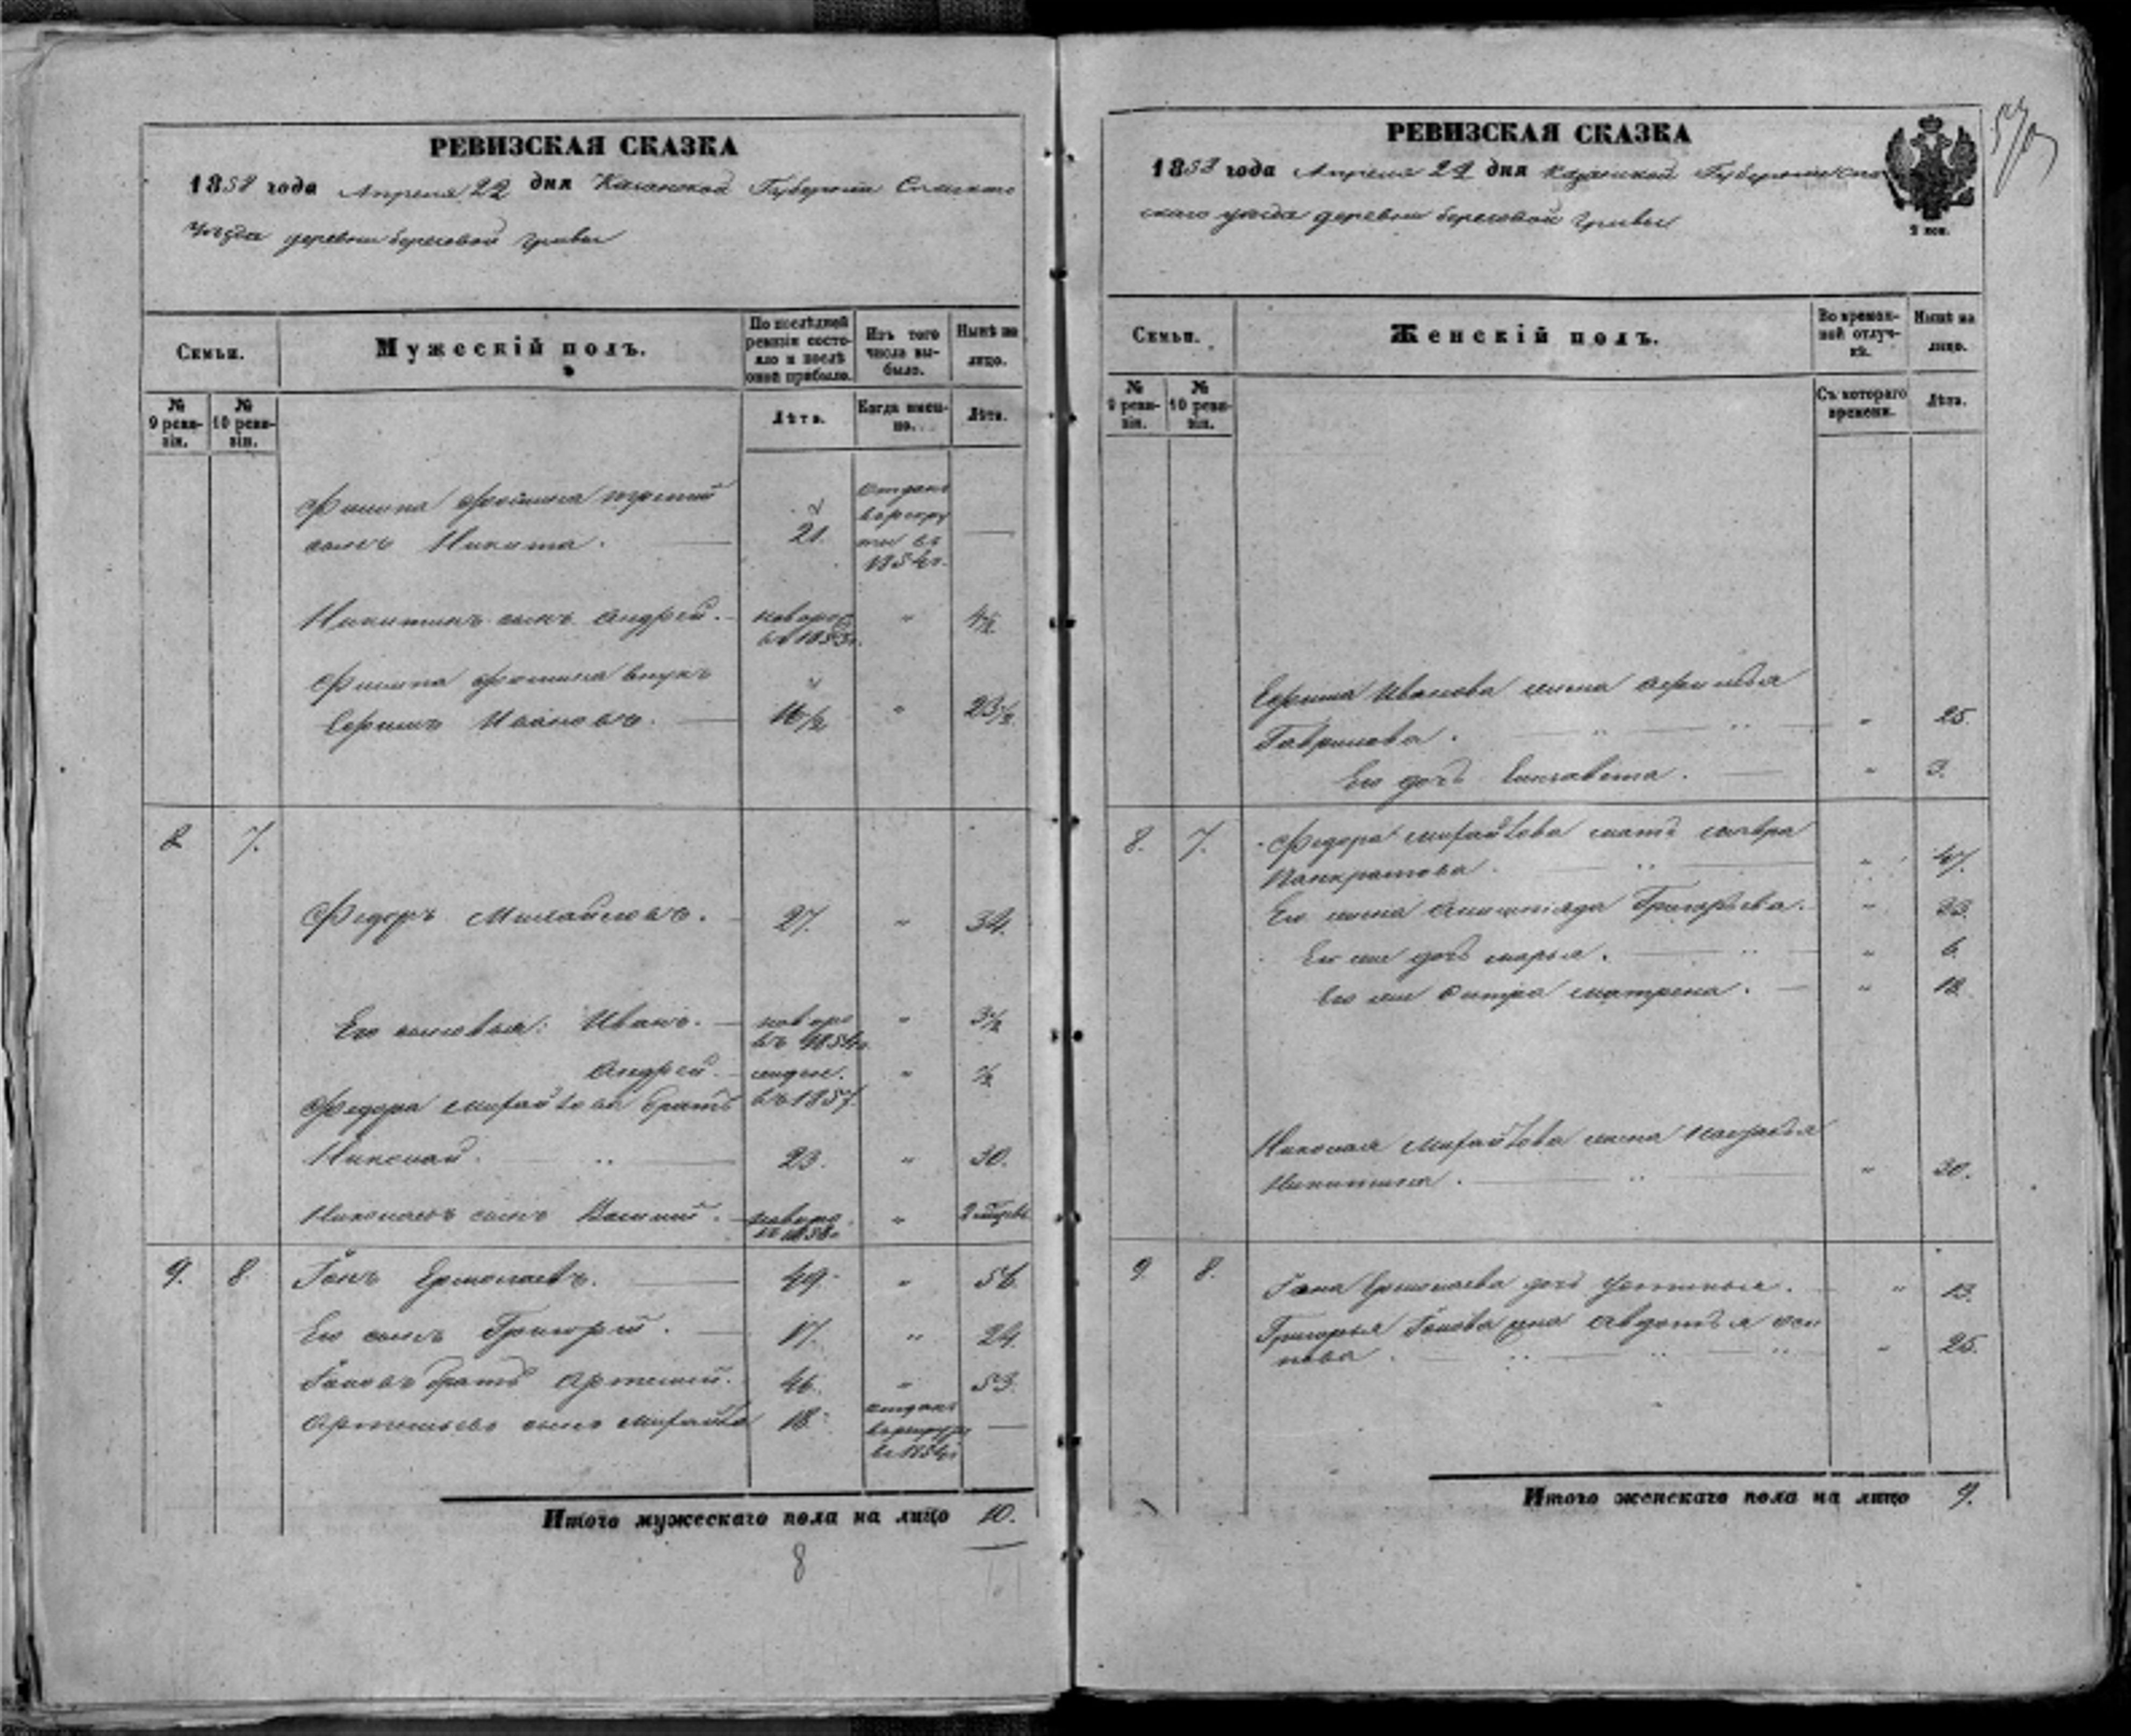 РЕВИЗСКАЯ СКАЗКА
1858 года Апреля 22 дня Казанской Губернiи Спаскаго
уезда деревни береговой Гривы
Семьи.
Мужескiй полъ.
По послѣдней ревизiи состояло и послѣ оной прибыло.
Изъ того числа выбыло.
Нынѣ на лицо.
№ 9 ревизiи.
№ 10 ревизiи.
Лѣта.
Когда имен-но.
Лѣта.
Филипа Фомина третий
сынъ Никита. 21. отданъ в рекруты въ 1854г. —
Никитинъ сынъ Андрей. новорож въ 1853г. " 4½
Филипа Фомина внукъ
Ефимъ Ивановъ. 16½ " 23½.
8 7.
Федоръ Михайловъ. 27. " 34.
Его сыновья: Иванъ. новоро въ 1854г. " 3½
Андрей. въ 1857. " ½
Федора Михайлова братъ
Николай. 23. " 30.
Николаевъ сынъ Василий. новоро въ 1858г. " 2
9. 8. Iонъ Ермолаевъ. 49. " 56.
Его сынъ Григорiй. 17. " 24.
Iоновъ братъ Артемий. 46. " 53.
Артемьевъ сынъ Михайла 18. отданъ в рекруты въ 1854г —
Итого мужескаго пола на лицо 10.
8
РЕВИЗСКАЯ СКАЗКА
1858 года Апреля 22 дня Казанской Губернiи Спа
скаго уезда деревни береговой Гривы
2 коп.
Семьи.
Женскiй полъ.
Во времен-ной отлуч-кѣ.
Нынѣ на лицо.
№ 9 реви-зiи.
№ 10 реви-зiи.
Съ котораго времени.
Лѣта.
Ефима Иванова жена
Гаврилова. " 25.
Его дочь Елизавета. " 3.
8. 7. Федора Михайлова мать
Панкратова. " 47.
Его жена Григорьева. " 33.
Его же дочь Марья. " 6.
Его же сестра Матрена. " 18
Николая Михайлова жена
Никитина. " 30.
9 8. Iона Ермолаева дочь Устинья. " 13.
Григорья Iонова жена Авдотья Оси
пова. " 25.
Итого женскаго пола на лицо 9.